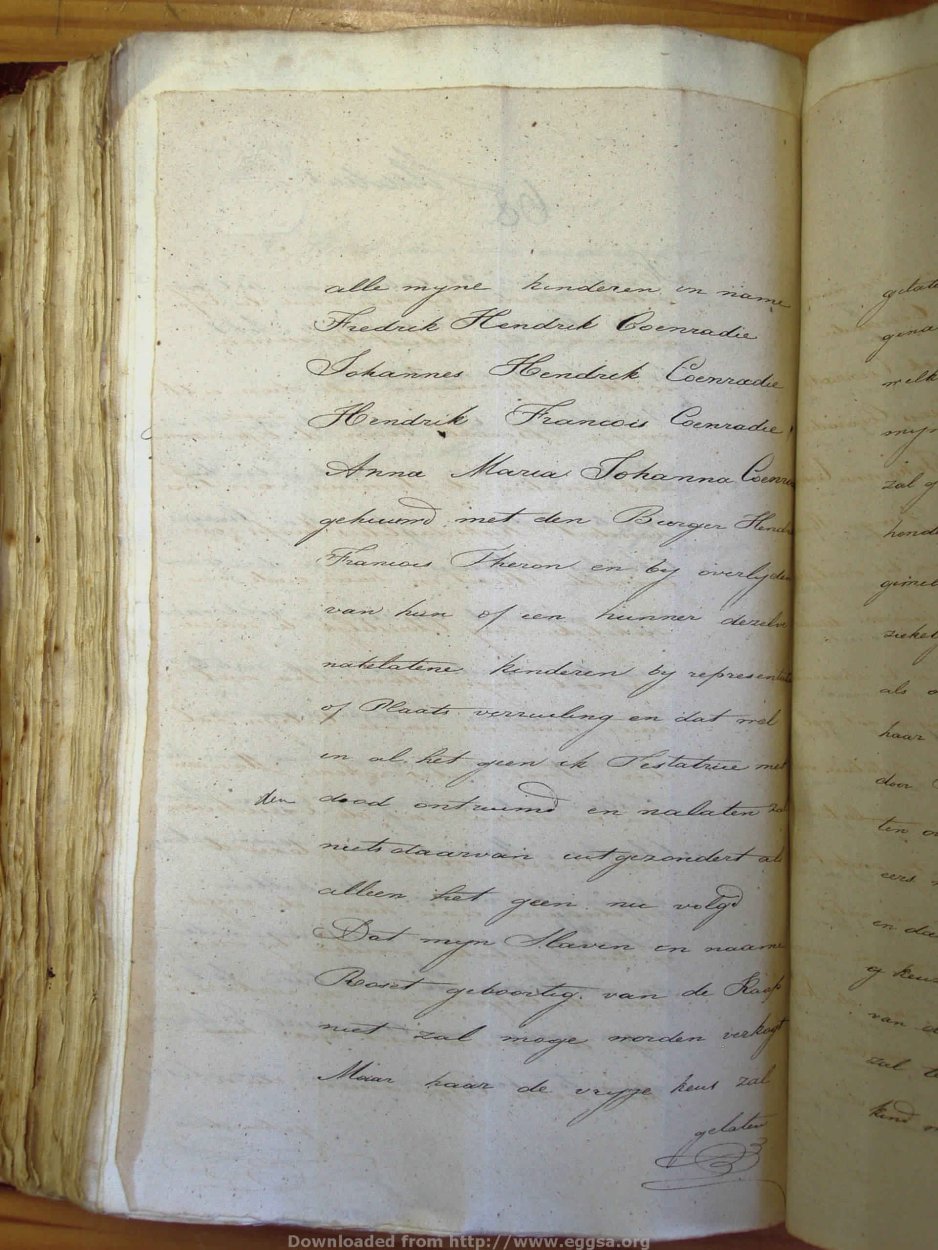 alle myne kinderen in name
Fredrik Hendrik Coenradie
Johannes Hendrik Coenradie
Hendrik Francois Coenradie
Anna Maria Johanna Coenra
gehuuwd met den Burger Hend
Francois Theron en by overlyden
van hun of een hunner dezelve
natelatene kinderen by representat
of Plaats vervueling en dat wel
in al het geen ik Testatrice met
den dood ontruimd en nalaten zal
niets daarvan uitgezondert als
alleen het geen nu volgd
Dat myn Slaven in naame
Roset geboortig van de Kaap
niet zal moge worden verkogt
Maar haar de vrype keus zal
gelaten
gelate
welk
myn
zal g
honde
gemel
zieke
als
haar
door
ten
eers
en da
van
zal te
kind
Downloaded from http://www.eggsa.org